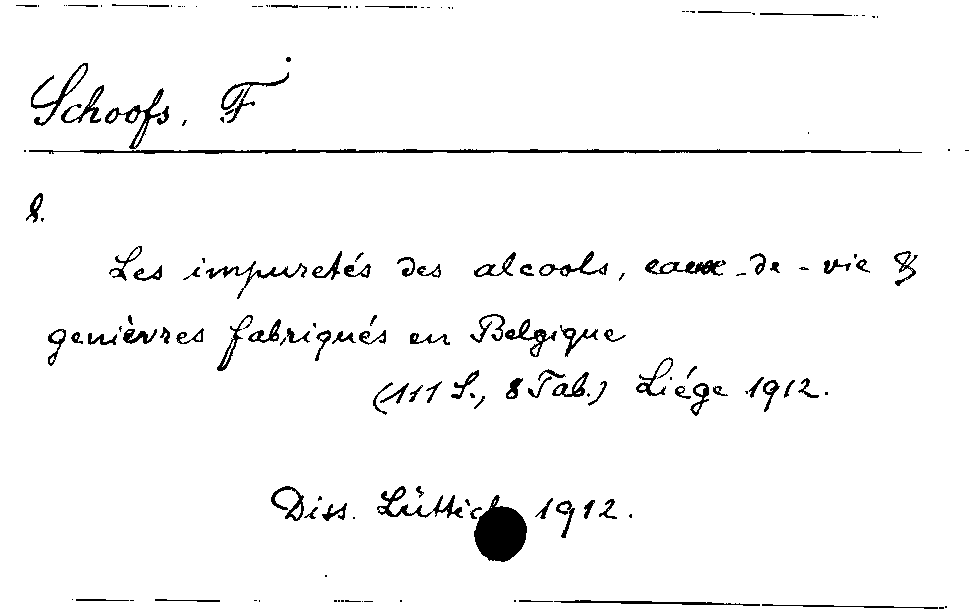 Schoofs, F
8.
Les impuretés des alcools, eaux-de-vie &
genièvres fabriqués en Belgique
(111 S., 8 Tab.) Liége 1912.
Diss. Lüttich 1912.